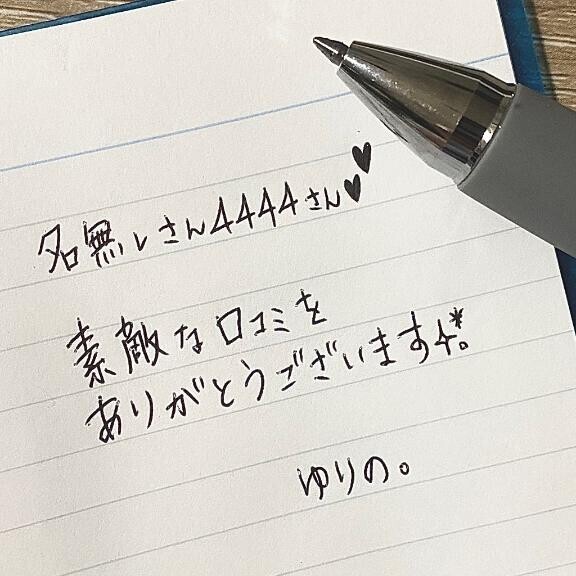 名無しさん4444さん♥♥
素敵な口コミを
ありがとうございます𓂃*。
ゆりの。